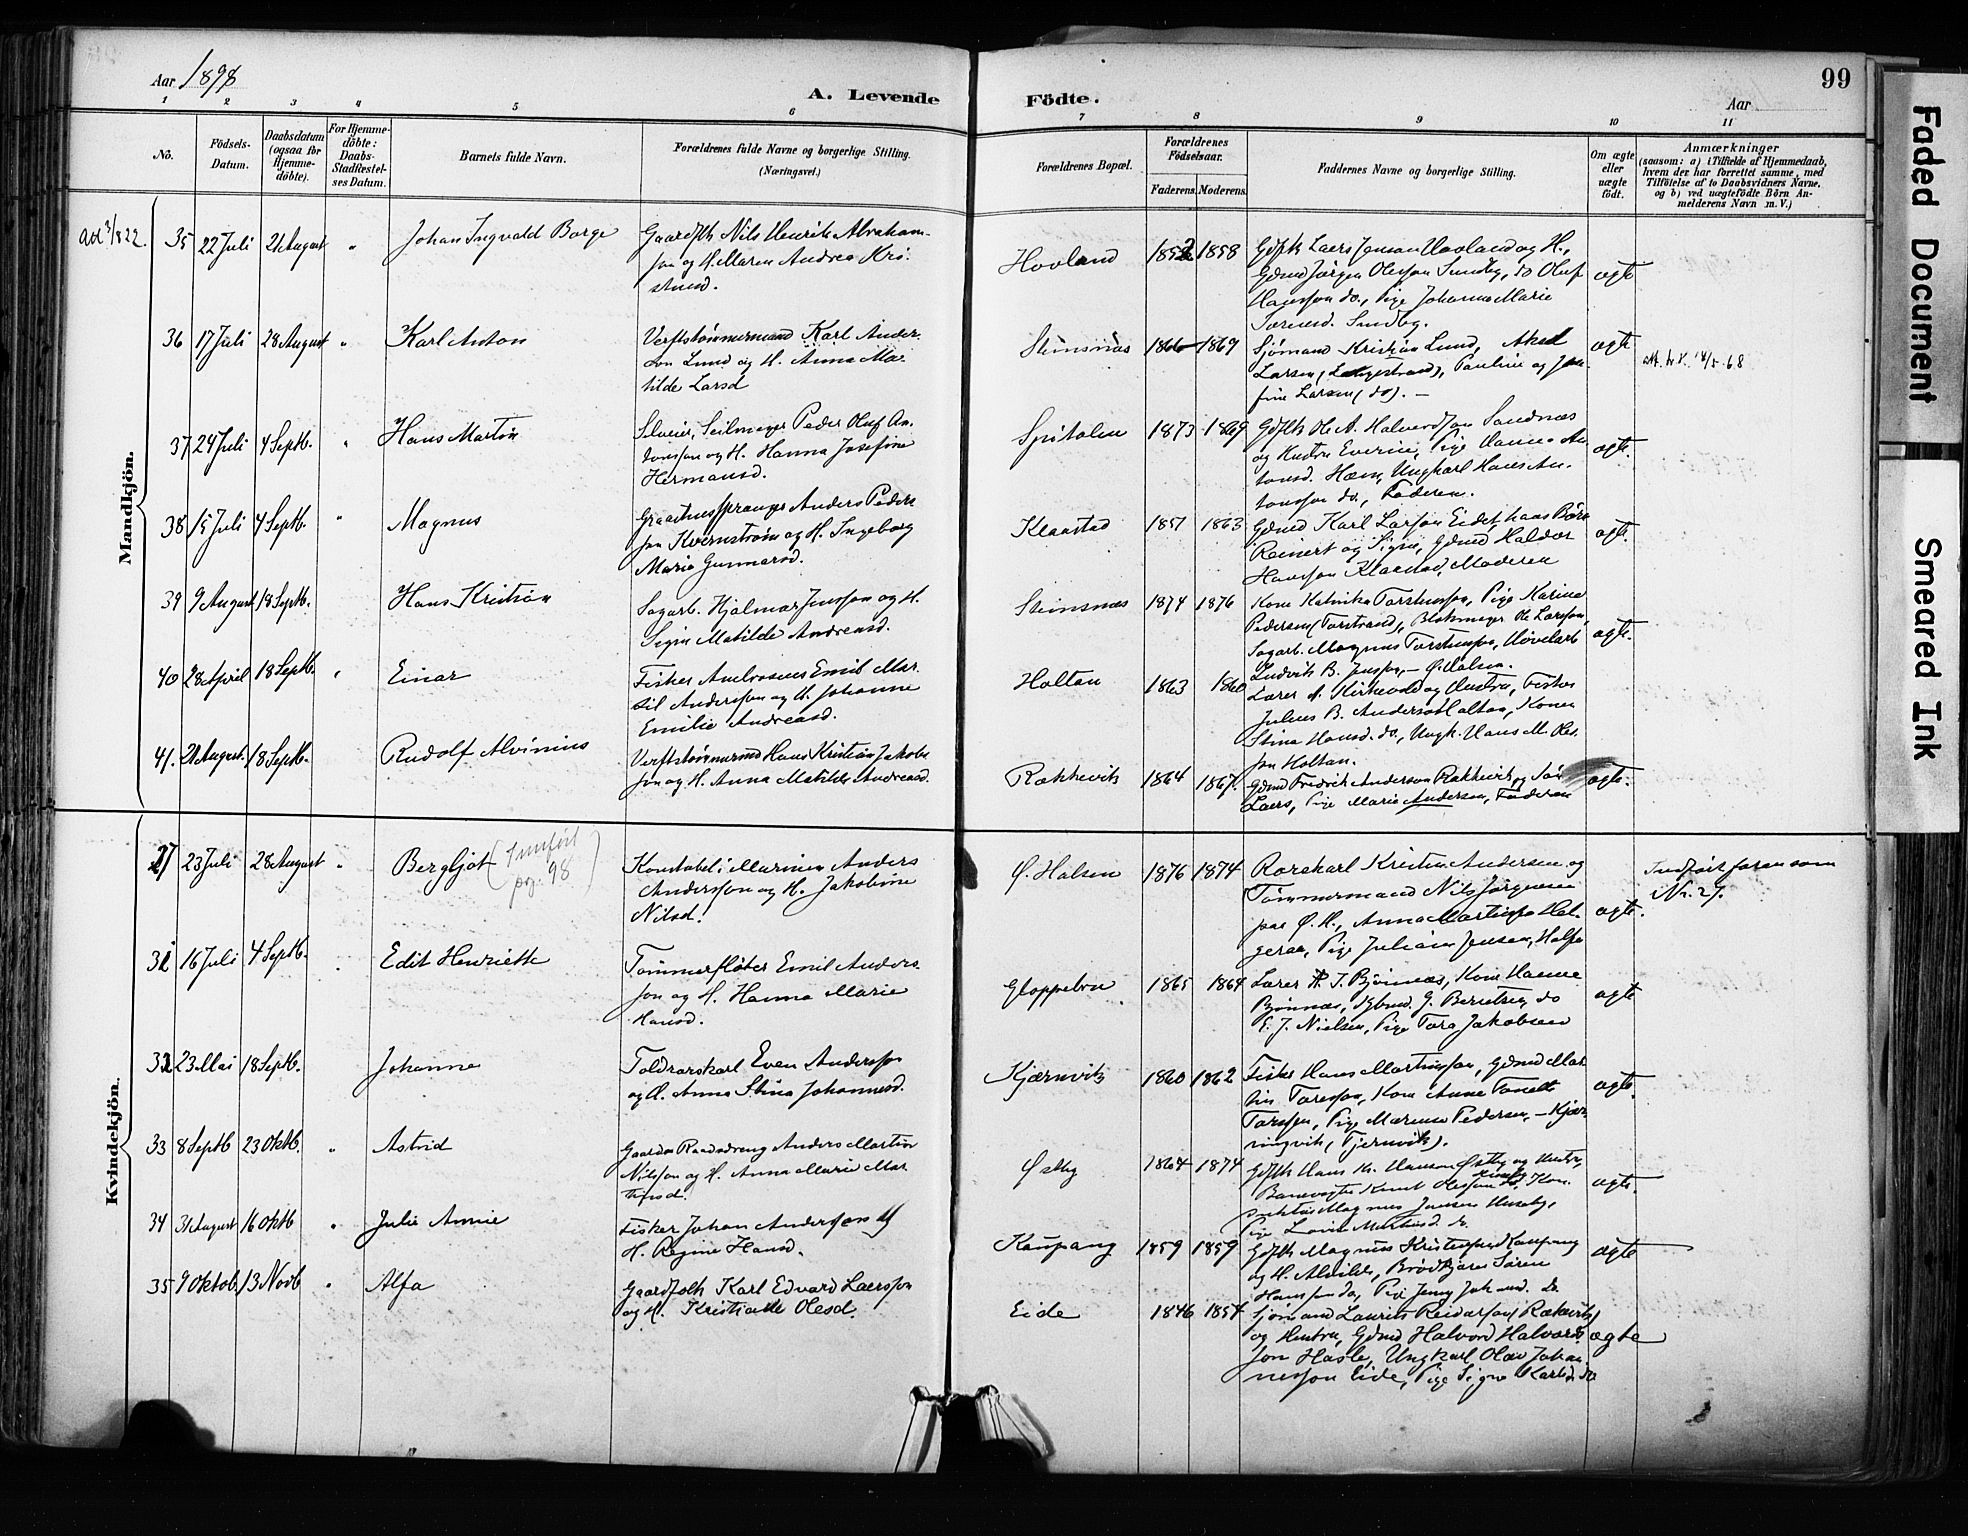 Aar 1898
A. Levende
Födte.
Aar
99
1 2 3 4 5 6 7 8 9 10 11
No.
Födsels-
Datum.
Daabsdatum
(ogsaa for
Hjemme-
döbte).
For Hjemme-
döbte:
Daabs-
Stadfæstel-
ses Datum.
Barnets fulde Navn.
Forældrenes fulde Navne og borgerlige Stilling.
(Næringsvei.)
Forældrenes Bopæl.
Forældrenes
Födselsaar.
Faderens. Moderens.
Faddernes Navne og borgerlige Stilling.
Om ægte
eller
uægte
födt.
Anmærkninger
(saasom: a) i Tilfælde af Hjemmedaab,
hvem der har forrettet samme, med
Tilföielse af to Daabsvidners Navne,
og b) ved uægtefödte Börn An-
melderens Navn m. V.)
Mandkjön.
35 22 Juli 21 August " Johan Ingvald Borge
Gaardflk Nils Henrik Abraham-
son og H. Maren Andrea Kri-
stensd.
Hovland 1852 1858
Gdmd Jørgen Olesson Sundby, do Oluf
Hansson do., Pige Johanna Marie
Sundby.
ægte
36 17 Juli 28 August " Karl Anton
Verftstømmermand Karl Ander-
son Lund og H. Anna Ma-
tilde Larsd
Stensnæs 1866 1869
Sjømand Kristian Lund, Aksel
Larsen (Langestrand), Pauline og Jose-
fine Larsen (do). —
ægte
37 24 Juli 4 Septb. " Hans Martin
Seilmager Peder Oluf An-
tonsson og H. Hanna Josefine
Hermansd.
Spitalen 1873 1869
Gdflk Ole A. Halvordson Sandnæs
og Hustru Everine, Pige Hanna An-
tonsd. Hæm, Ungkarl Hans An-
tonsson do., Faderen.
ægte.
38 15 Juli 4 Septb. " Magnus
Anders Peders-
son Kvernstrøm og H. Ingeborg
Maria Gunnarsd.
Klaastad 1857 1863
Gdmd Karl Larson Eidet, hans Børn
Reinert og Signe, Gdmd Haldor
Hansson Klaastad, Moderen
ægte.
39 9 August 18 Septb. Hans Kristian
Sagarb. Hjalmar Jensson og H.
Signe Matilde Andreasd.
Stensnæs 1874 1876
Kone Katrika Torstensson, Pige Karine
Pedersen (Torstrand), Blokmager Ole Larsson,
Sagarb. Magnus Torstensson, Høvelarb
Ludvik B. Jensson, — Ø. Halsen.
ægte.
40 28 April 18 Septb. " Einar
Fisker Ambrosius Emil Mar-
til Andersson og H. Johanne
Emilie Andreasd.
Holtan 1863 1860
Lærer A. Kirkevold og Hustru, Fisker
Julius B. Anderson Holtan, Konen
Stina Hansd. do., Ungk. Hans M. Ols-
son Holtan.
41. 21 August. 18 Septb. Rudolf Alvinius
Verftstømmermd Hans Kristian Jakobs-
son og H. Anna Matilde Andreasd.
Rakkevik 1864 1867.
Gdmd Fredrik Anderson Rakkevik og Søn
Laers, Pige Marie Andersen, Faderen
ægte.
Kvindekjön.
27 23 Juli 28 August " Bergljot (Innført
pag. 98)
Konstabel i Marinen Anders
Andersson og H. Jakobine
Nilsd.
Ø. Halsen 1876 1874
Rorskarl Kristen Andersen og
Tømmermand Nils Jørgensen
paa Ø. H., Anna Martinsen Hel-
geroa, Pige Juliane Jensen, Halsen
ægte.
Indført foran som
Nr. 27.
31 16 Juli 4 Septb. Edit Henriette
Tømmerfløter Emil Anders-
son og H. Hanna Marie
Hansd.
Gloppebro 1865 1864
Lærer P. J. Bjønnæs, Kone Hanne
Bjønnæs, G. Berntsen, do
E. J. Nielsen, Pige Tora Jakobsen
ægte
32 23 Mai 18 Septb. Johanne
Toldrorskarl Even Andersson
og H. Anna Stina Johannesd.
Kjærnvik 1860 1862
Fisker Hans Martinsson, Gdmd Mar-
tin Toresson, Kone Anne Tonette
Torsson, Pige Marenus Pedersen, — Kjær-
ringvik, (Tjernvik).
ægte.
33 8 Septb 23 Oktb. " Astrid
Anders Martin
Nilsson og H. Anna Marie Mar-
tinsd.
Østby 1864 1874
Gdflk Hans Kr. Hansson Østby og Hustru,
Banevogter Knut Olesson
Magnus Jansen Huseby,
Pige do.
ægte.
34 31 August 16 Oktb " Julie Annie
Fisker Johan Anderssen og
H. Regine Hansd.
Kaupang 1859 1859
Gdflk Magnus Kristensen Kaupang
og H. Alvilde, Brødkjører Søren
Hansson do, Pige Jenny Joh.nsd. do
ægte
35 9 Oktob. 13 Novb " Alfa
Gaardfolk Karl Edvard Laersson
og H. Kristianne Olesd.
Eide 1846 1854
Sjømand Laurits Reidarson (Rakkevik)
og Hustru, Gdmd Halvord Halvord-
son Hasle, Ungkarl Olav Johan-
nesson Eide, Pige Signe Karlsd. do
ægte
Faded Document
Smeared Ink